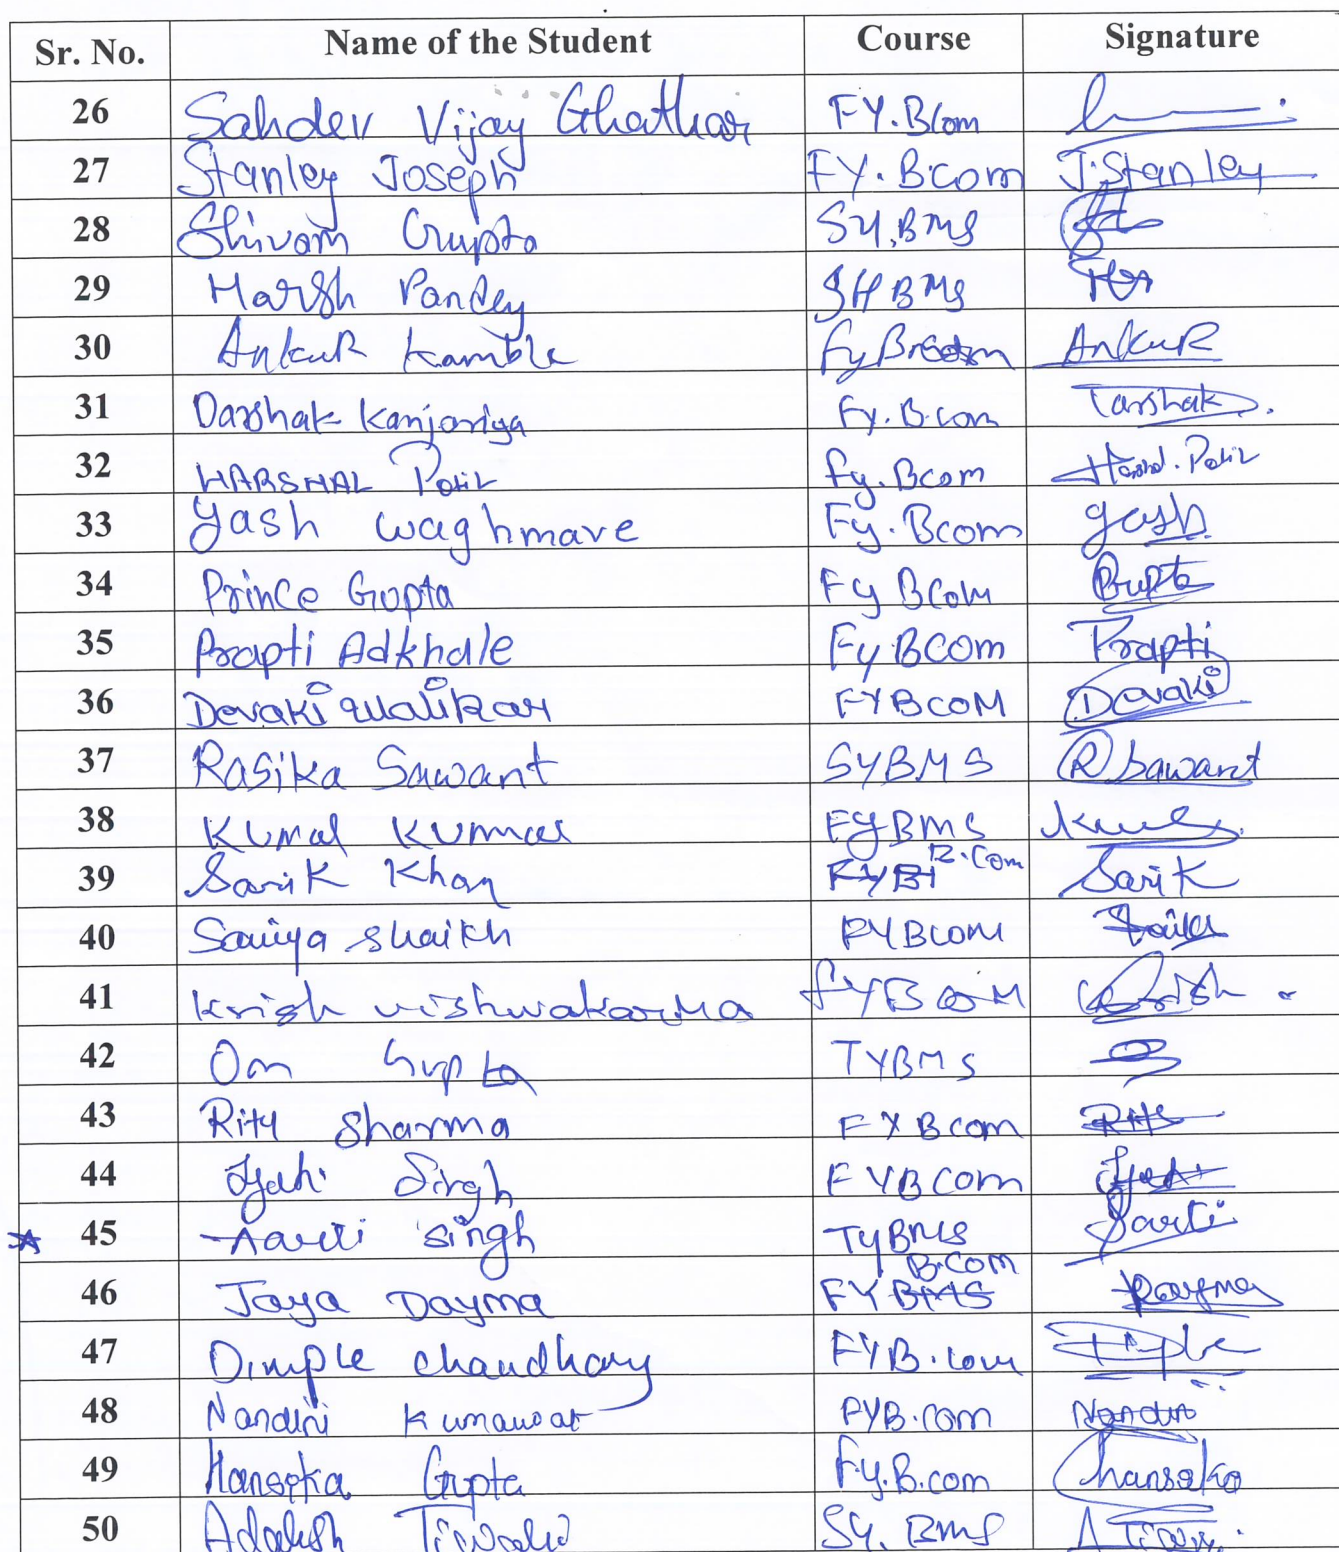 Sr. No. Name of the Student Course Signature
26 Sahdev Vijay FY.BCom
27 Stanley Joseph FY.B.com J.Stanley
28 Shivam Gupta SY.BMS
29 Harsh Pandey SY BMS
30 AnkuR Kamble Fy AnkuR
31 Darshak Kanjariya Fy.B.com Darshak
32 HARSHAL Patil Fy.Bcom Patil
33 Yash waghmare Fy.Bcom Yash
34 Prince Gupta Fy BCom Gupta
35 Prapti Adkhale Fy BCOM Prapti
36 Devaki Walikar FYBCOM Devaki
37 Rasika Sawant SYBMS R Sawant
38 Kumar FYBMS
39 Sarik Khan FYB B.Com Sarik
40 Saniya Shaikh FYBCOM
41 Krish vishwakarma FYBCOM Krish
42 Om Gupta TYBMS
43 Sharma FYBcom
44 Singh FYBCOM
45 Aarti Singh TYBMS Aarti
46 Jaya Dayma FY BMS B.COM Dayma
47 Dimple chaudhary FYB.com
48 Nandini Kumawat FYB.com Nandini
49 Gupta F.y.B.com
50 Adarsh SY. BMS